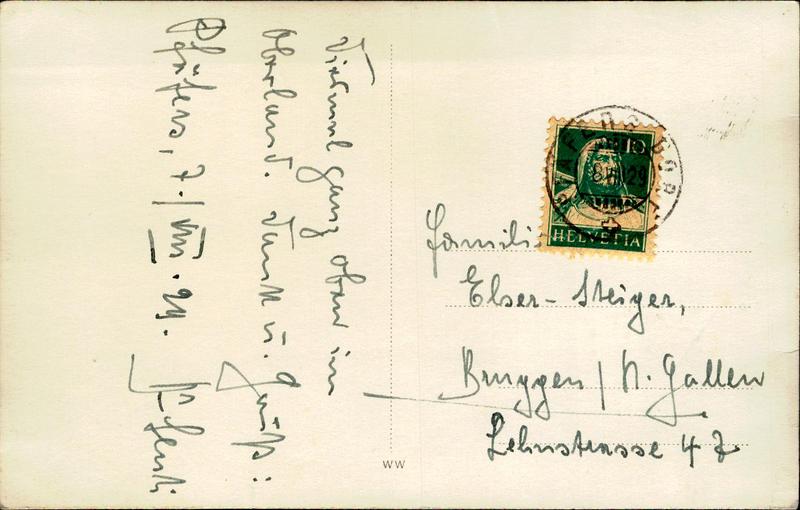 Diesmal ganz oben im
Oberland. Dank u. Gruß:
Pfäfers, 7./VIII. 29.
10
HELVETIA
PFÄFERS DORF
8.VIII.29
Familie
Elser-Steiger,
Bruggen / St. Gallen
Lehnstrasse 47
WW